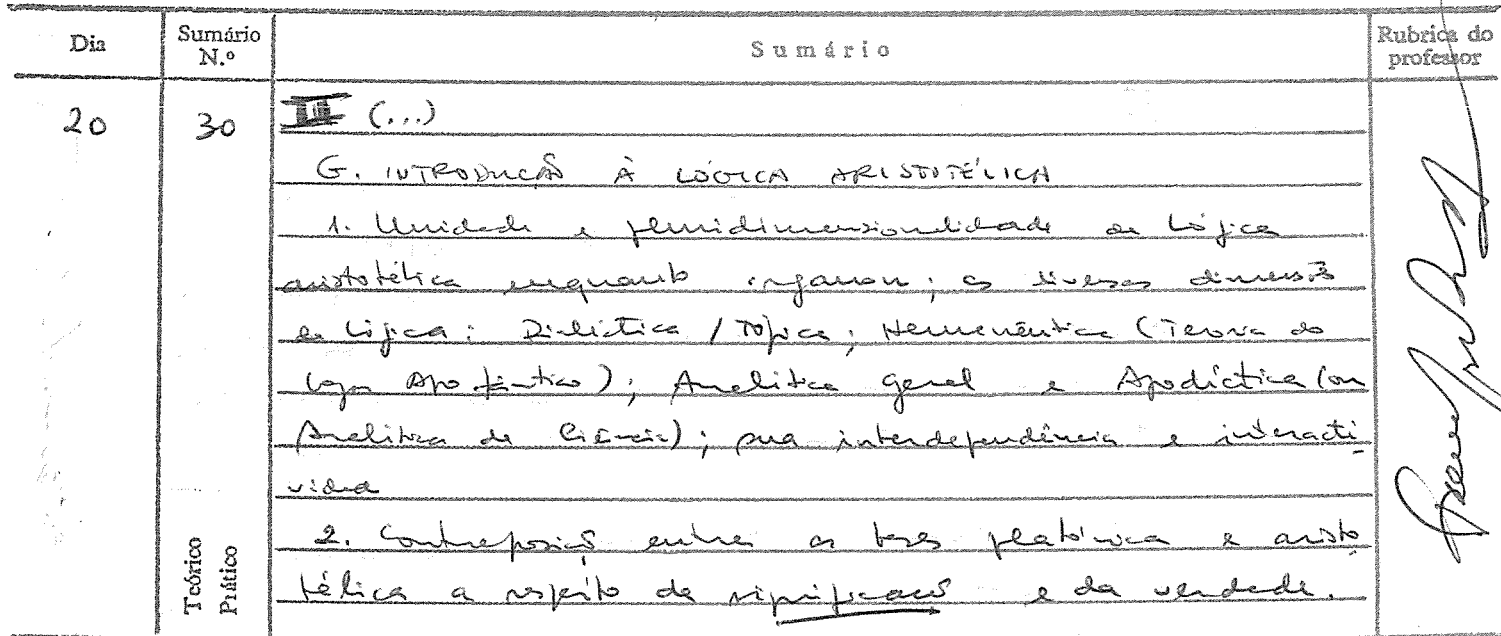 Dia Sumário N.º Sumário Rubrica do professor
20 30 III (...)
G. INTRODUÇÃO À LÓGICA ARISTOTÉLICA
1. Unidade e pluridimensionalidade da Lógica
aristotélica enquanto organon; as diversas dimensões
da Lógica: Dialéctica / Tópica; Hermenêutica (Teoria do
logos Apofântico); Analítica geral e Apodíctica (ou
Analítica da Ciência); sua interdependência e interacti-
vidade
2. Contraposição entre as teses platónica e aristo
télica a respeito da significação e da verdade.
Teórico
Prático